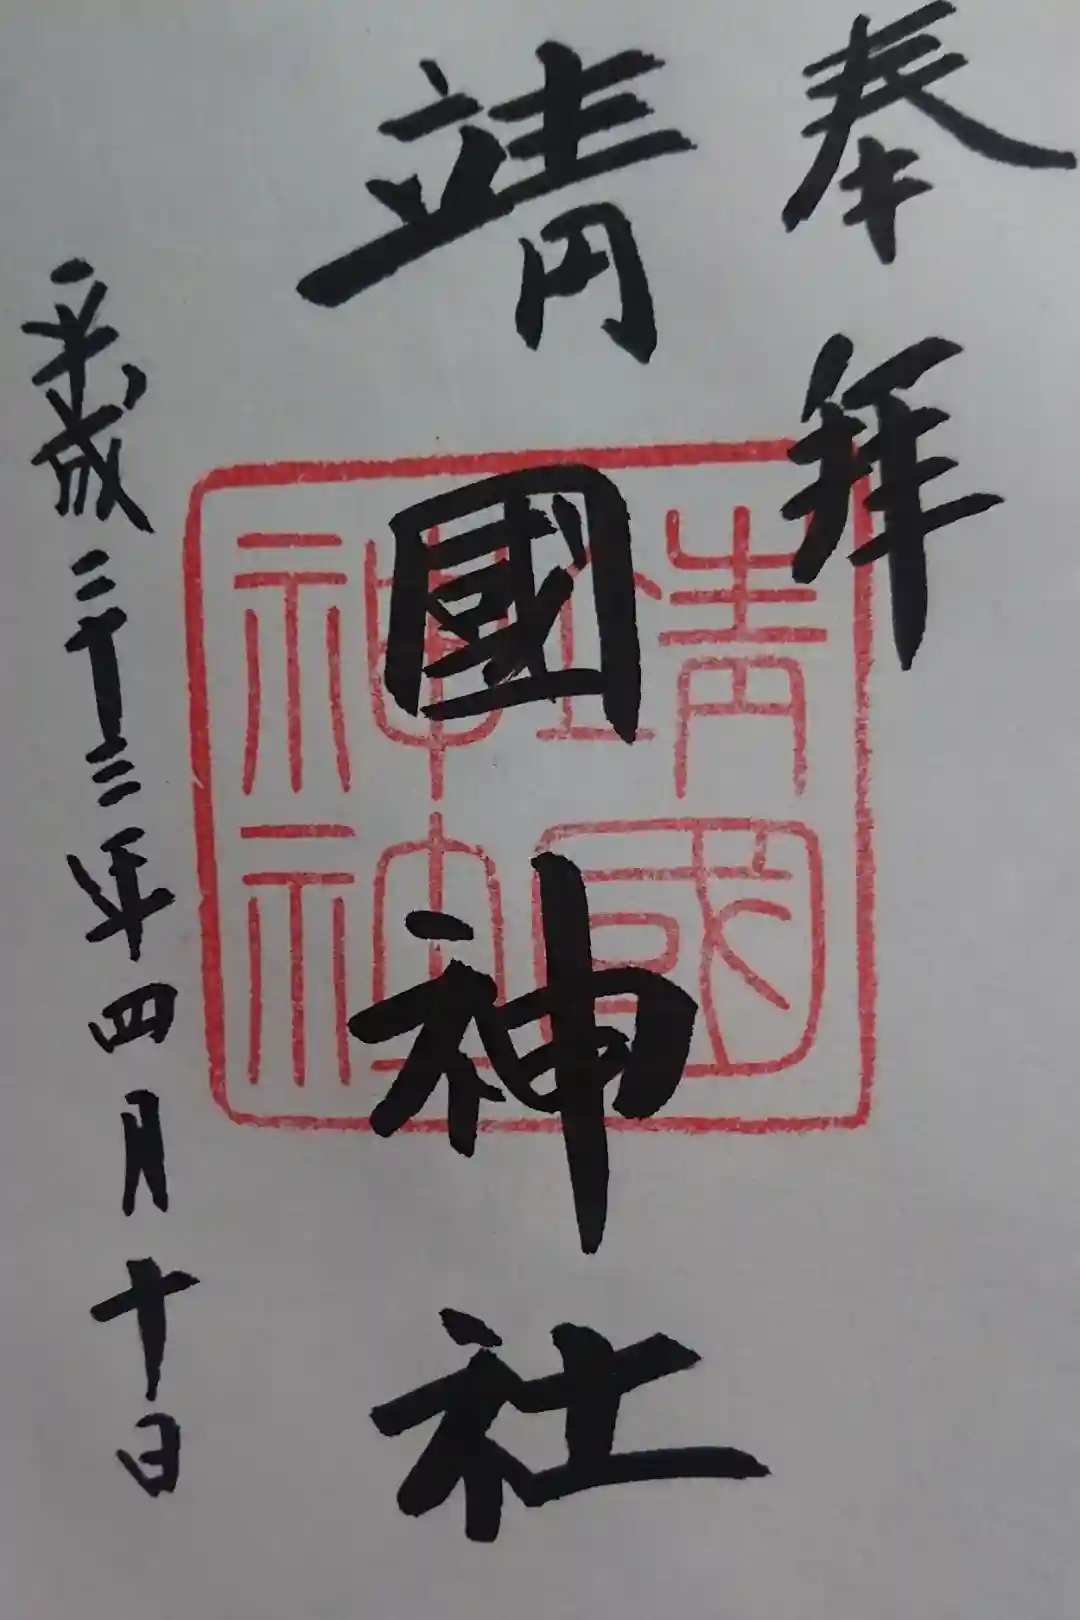 奉拜
靖國神社
平成二十三年四月十日
靖國
神社